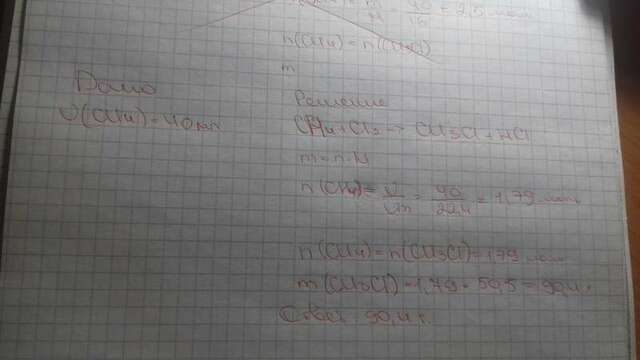 n(CH4) = n(CH3Cl)
m
Дано
V(CH4) = 40 мл
Решение
CH4 + Cl2 -> CH3Cl + HCl
m = n·M
n(CH4) = V/Vm = 40/22,4 = 1,79 моль
n(CH4) = n(CH3Cl) = 1,79 моль
m(CH3Cl) = 1,79 * 50,5 = 90,4 г.
Ответ: 90,4 г.